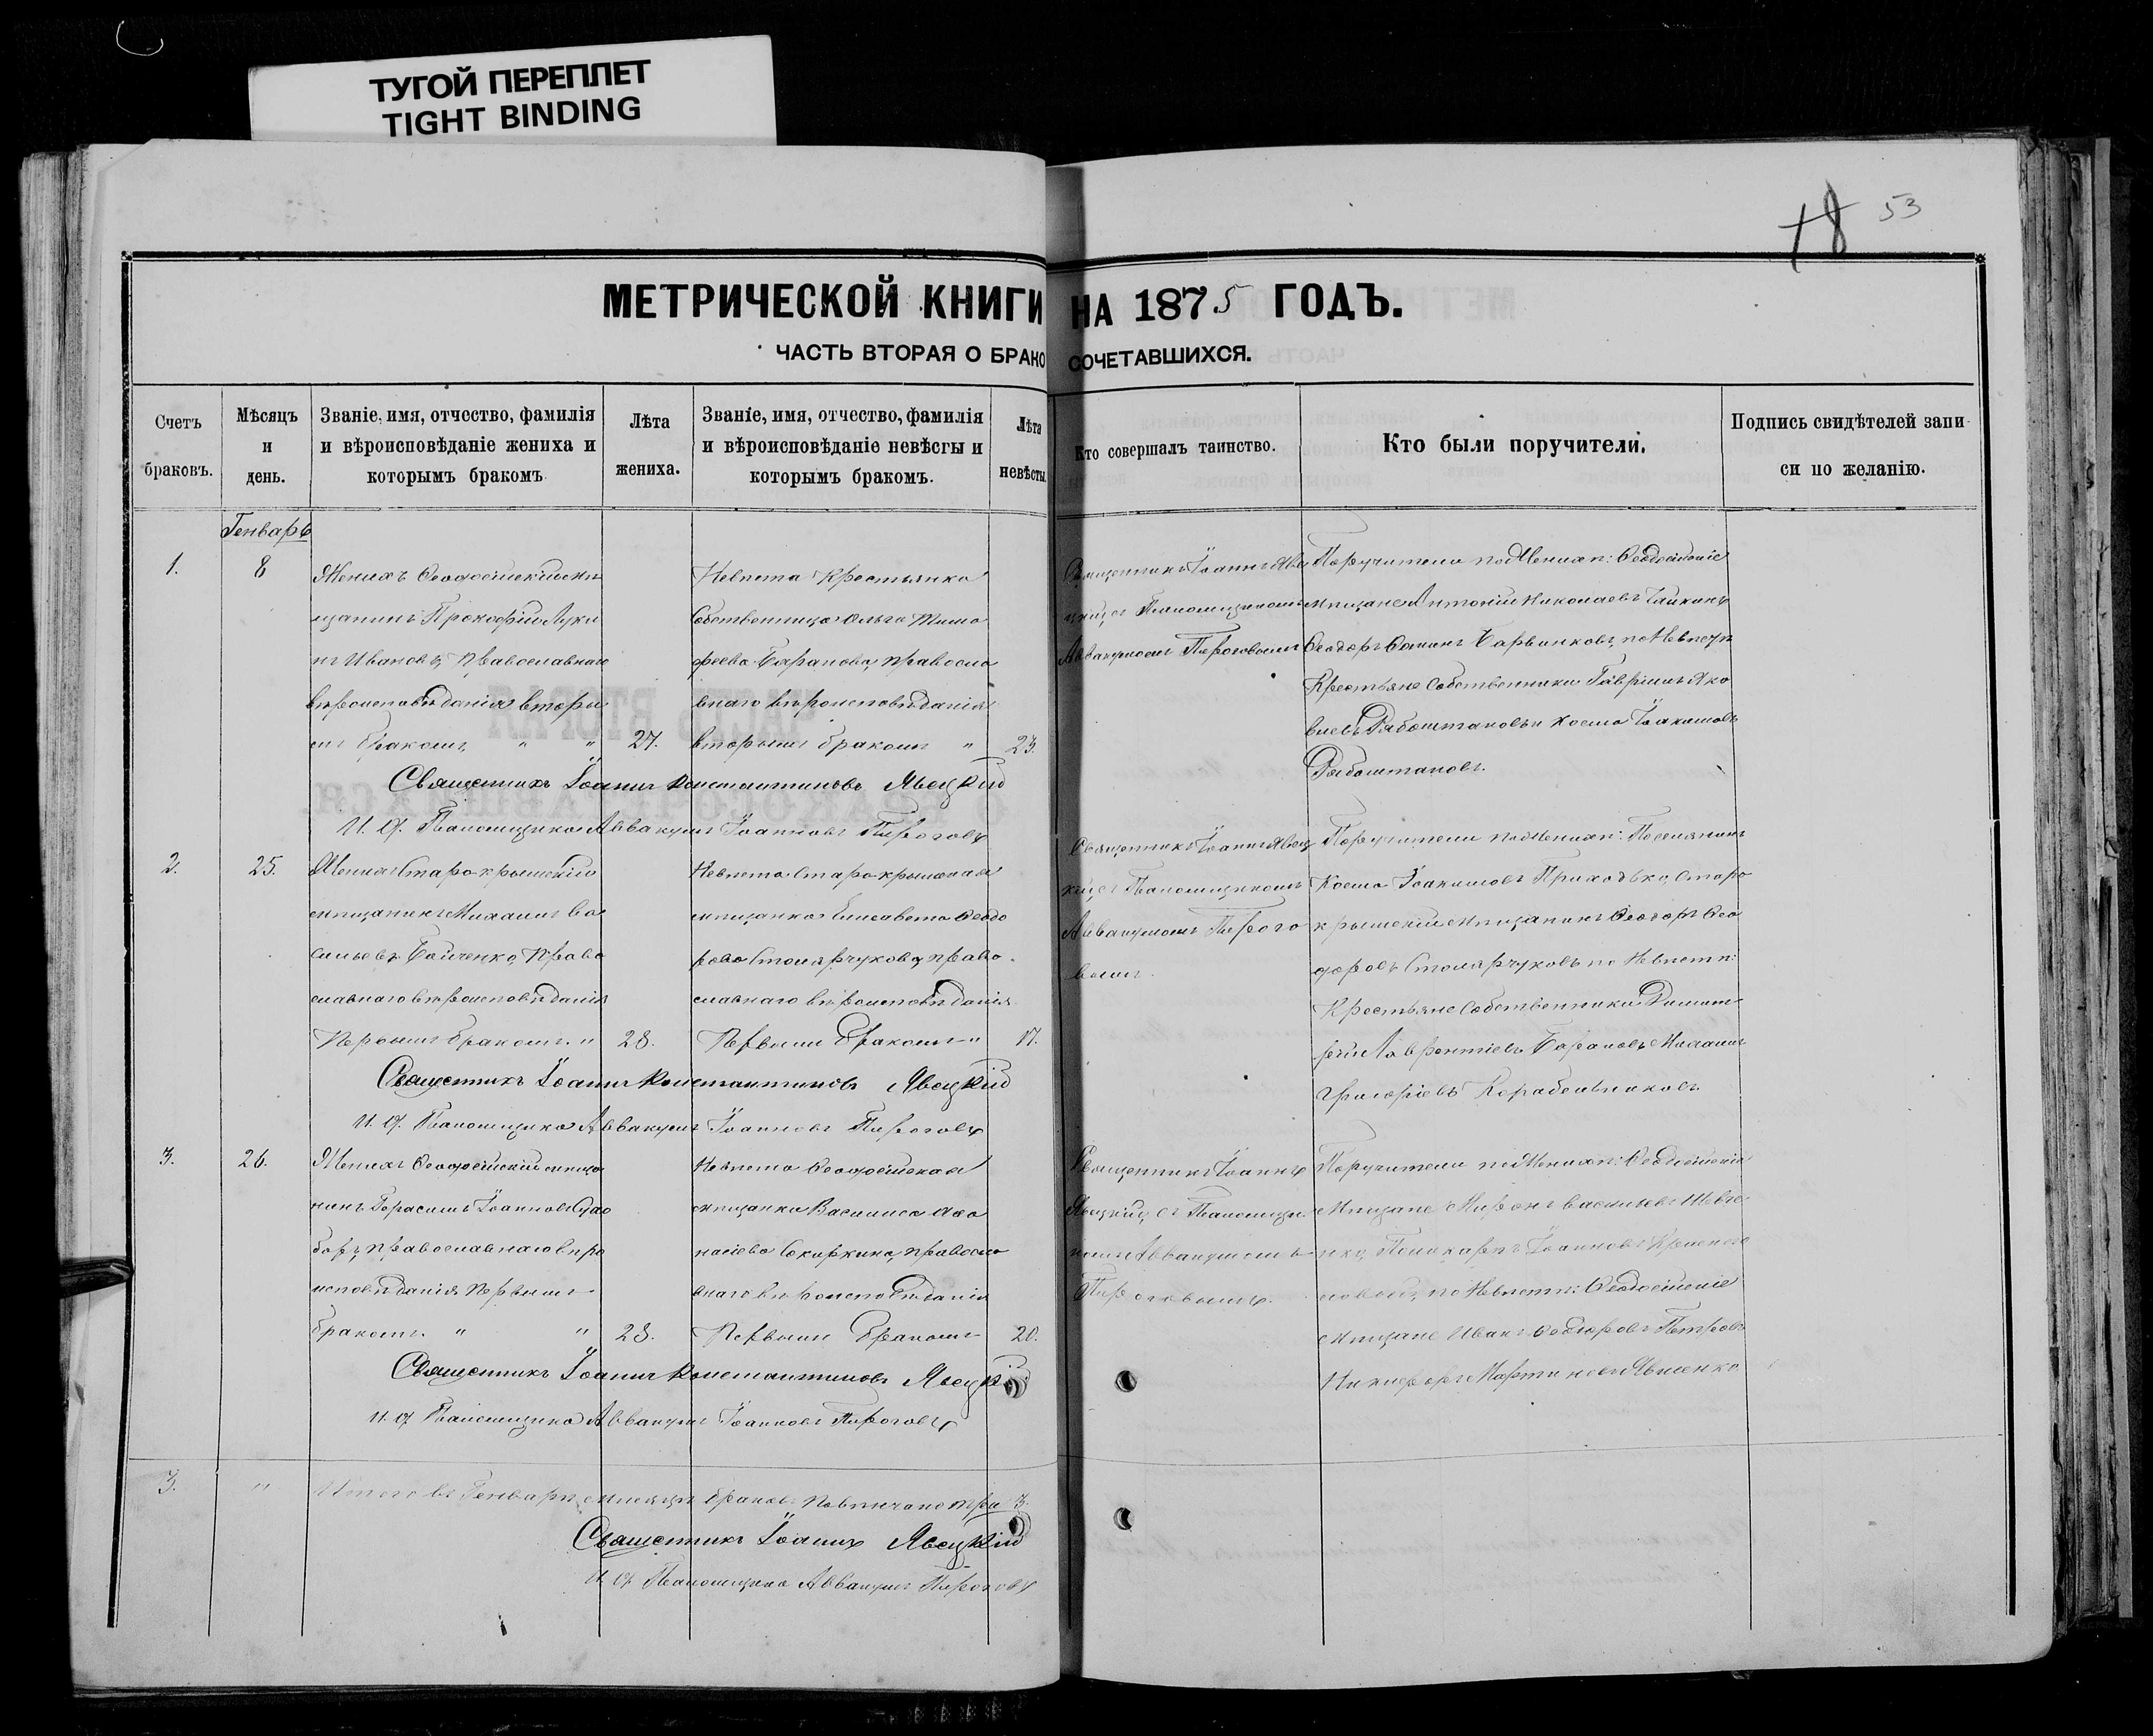 ТУГОЙ ПЕРЕПЛЕТ
TIGHT BINDING
18 53
МЕТРИЧЕСКОЙ КНИГИ НА 1875 ГОДЪ.
ЧАСТЬ ВТОРАЯ О БРАКОСОЧЕТАВШИХСЯ.
Счетъ браковъ.
Мѣсяцъ и день.
Званіе, имя, отчество, фамилія и вѣроисповѣданіе жениха и которымъ бракомъ
Лѣта жениха.
Званіе, имя, отчество, фамилія и вѣроисповѣданіе невѣсты и которымъ бракомъ.
Лѣта невѣсты.
Кто совершалъ таинство.
Кто были поручители.
Подпись свидѣтелей записи по желанію.
Генварь
1.
8
Женихъ Ѳеодосійскій мѣ
щанинъ Прокофій Луки
нъ Ивановъ, православнаго
вѣроисповѣданія вторы
мъ бракомъ " "
27.
Невѣста Крестьянка
Собственница Ольга Тимо
феева Баранова, правосла
внаго вѣроисповѣданія
вторымъ бракомъ "
23.
Священникъ Іоаннъ Яве
цкій съ Паномщикомъ
Аввакумомъ Пироговымъ
Поручители по Женихѣ: Ѳеодосійскіе
мѣщане Антоній Николаевъ
Ѳеодоръ Ѳоминъ Барвинковъ, по Невѣстѣ
Крестьяне Собственники Гавріилъ Яко
влевъ Рябоштановъ и Косма Іоакимовъ
Рябоштановъ.
Священникъ Іоаннъ Константиновъ Явецкій
И. д. Паномщика Аввакумъ Іоанновъ Пироговъ
2.
25.
Женихъ Старокрымскій
мѣщанинъ Михаилъ Ва
сильевъ Бойченко, Право
славнаго вѣроисповѣданія
Первымъ бракомъ. "
23.
Невѣста Старокрымская
мѣщанка Елисавета Ѳеодо
рова Столярчукова, право
славнаго вѣроисповѣданія
Первымъ бракомъ "
17.
Священникъ Іоаннъ Явец
кій съ Паномщикомъ
Аввакумомъ Пирого
вымъ.
Поручители по Женихѣ: Поселянинъ
Косма Іоакимовъ Приходько, Старо
крымскій мѣщанинъ Ѳеодоръ Ѳео
доровъ Столярчуковъ по Невѣстѣ:
Крестьяне Собственники Димит
рій Лаврентіевъ Барановъ, Михаилъ
Григоріевъ Корабельниковъ
Священникъ Іоаннъ Константиновъ Явецкій
И. д. Паномщика Аввакумъ Іоанновъ Пироговъ
3.
26.
Женихъ Ѳеодосійскій мѣща
нинъ Герасимъ Іоанновъ
православнаго вѣро
исповѣданія Первымъ
бракомъ. " "
23.
Невѣста Ѳеодосійская
мѣщанка Василиса Аѳа
насіева Скоркина, правосла
внаго вѣроисповѣданія
Первымъ бракомъ
20.
Священникъ Іоаннъ
Явецкій, съ Паномщи
комъ Аввакумомъ
Пироговымъ.
Поручители по Женихѣ: Ѳеодосійскіе
Мѣщане Миронъ Васильевъ Шевче
нко, Поликарпъ Іоанновъ
по Невѣстѣ: Ѳеодосійскіе
мѣщане Иванъ Ѳеодоровъ Петровъ
Никифоръ Мартиновъ
Священникъ Іоаннъ Константиновъ Явецкій
И. д. Паномщика Аввакумъ Іоанновъ Пироговъ
3. " Итого въ Генварѣ мѣсяцѣ браковъ повѣнчано три 3.
Священникъ Іоаннъ Явецкій
И. д. Паномщика Аввакумъ Пироговъ